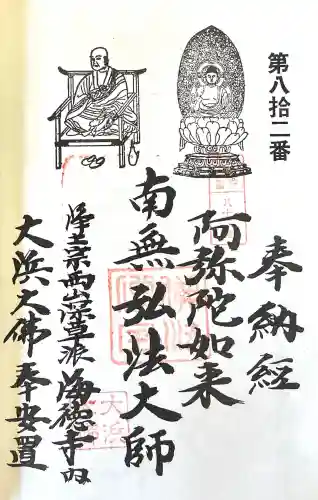 第八拾二番
奉納経
阿弥陀如来
南無弘法大師
浄土宗西山深草派 海徳寺内
大浜大佛奉安置
大浜